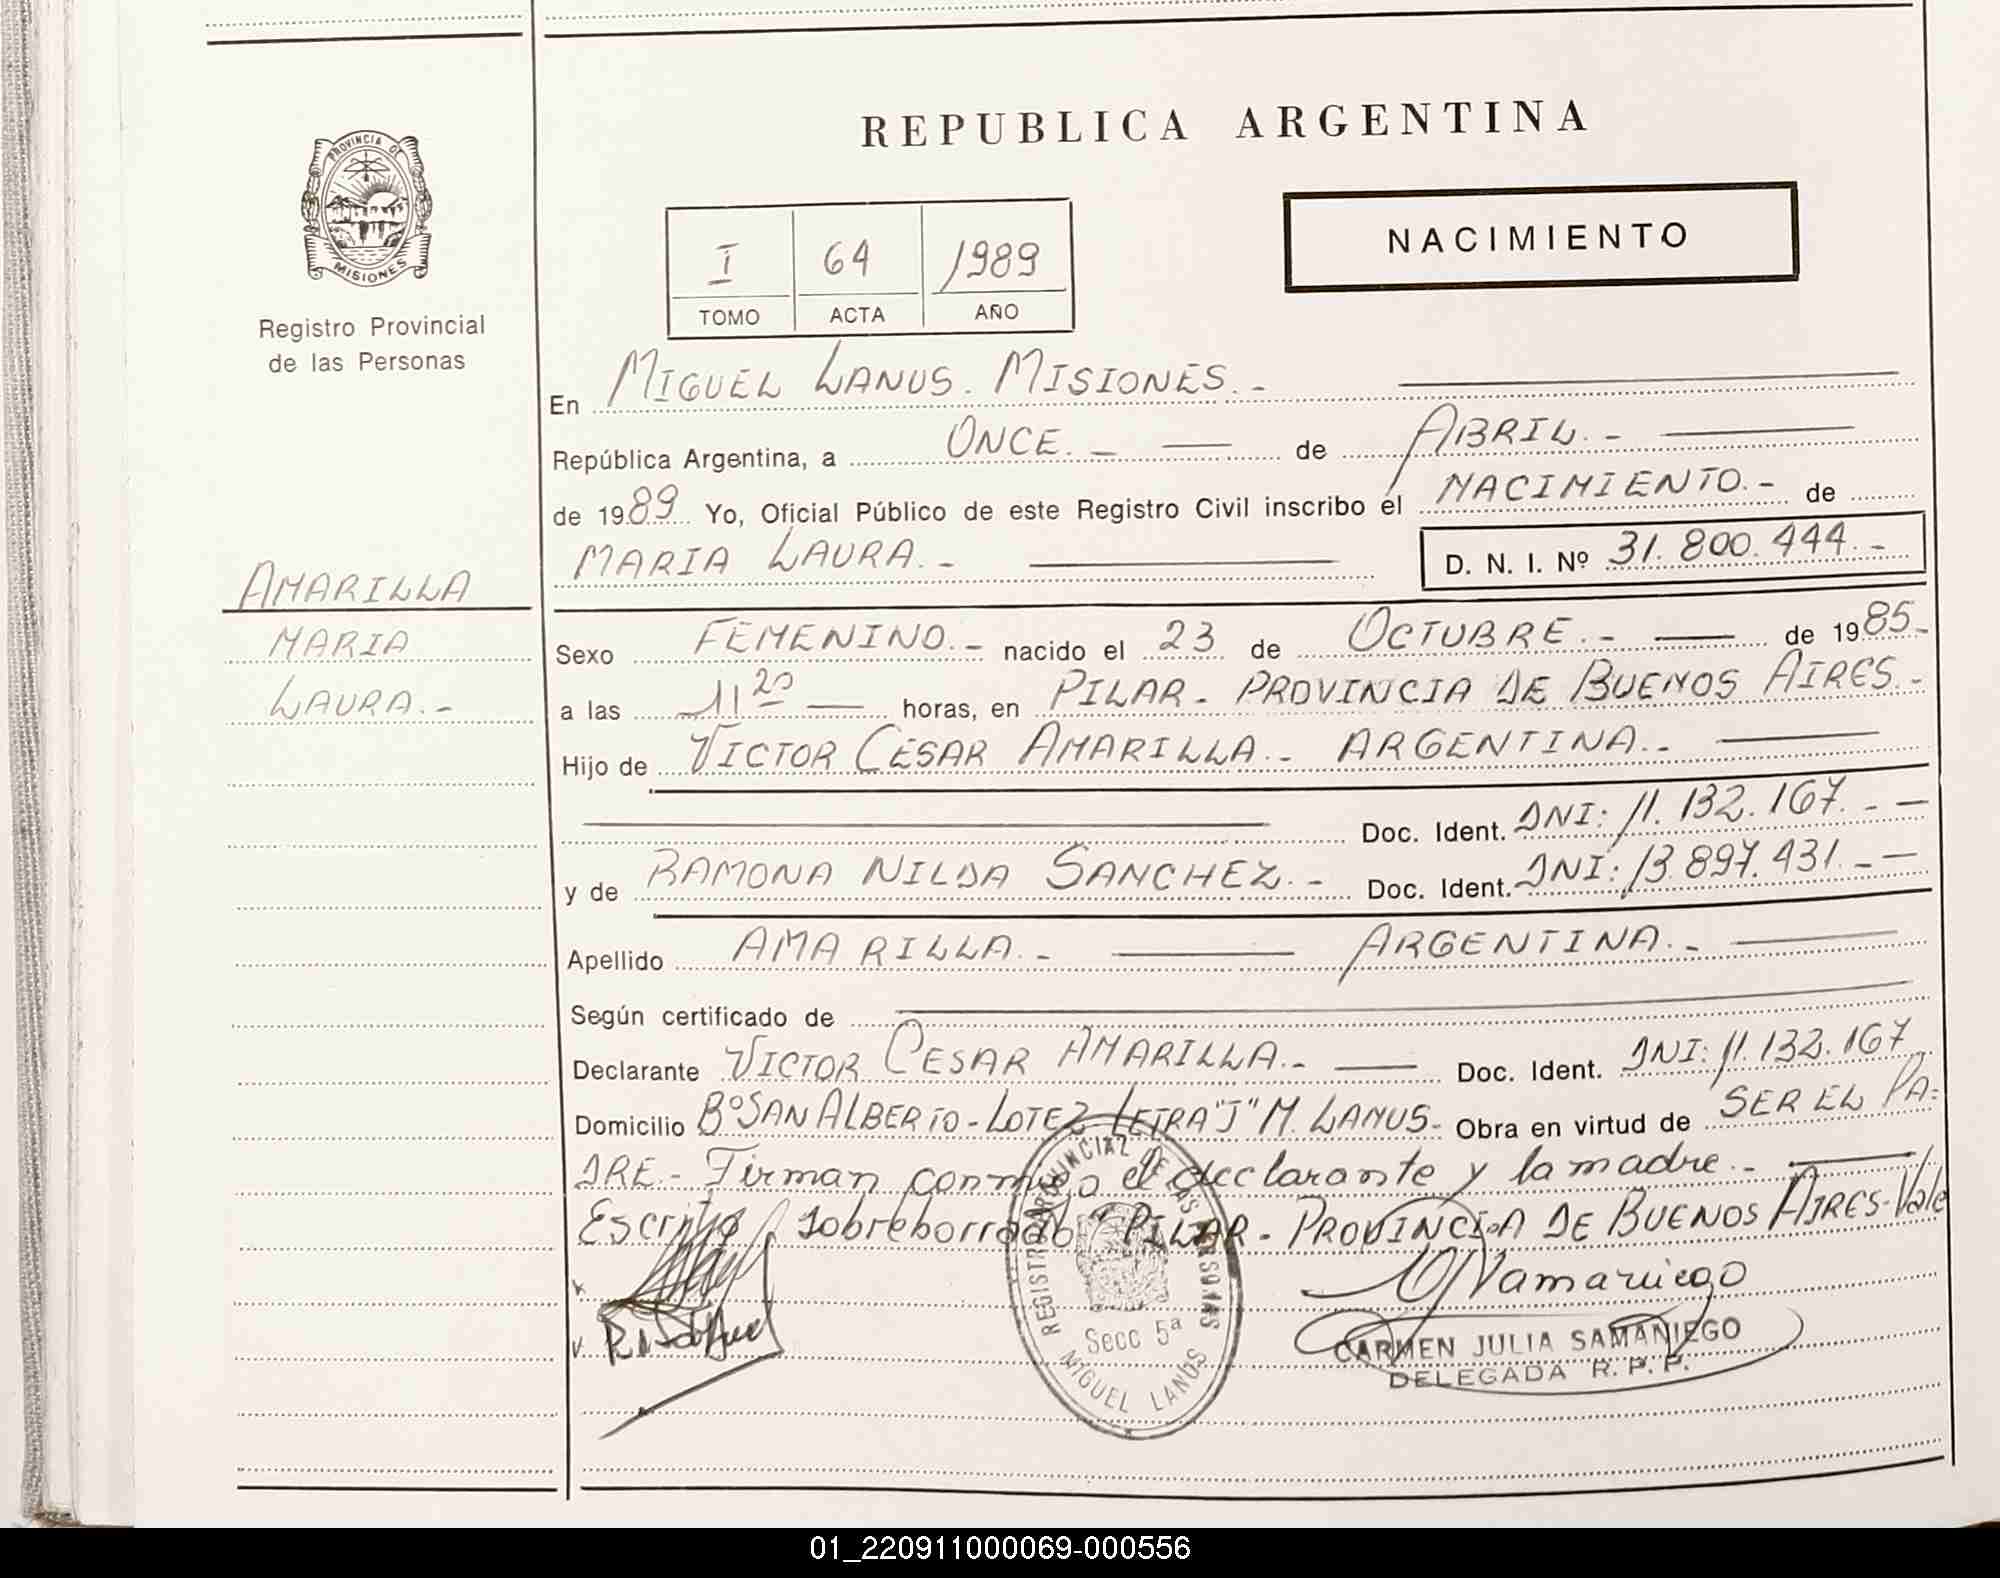 REPUBLICA ARGENTINA
PROVINCIA DE
MISIONES
Registro Provincial
de las Personas
NACIMIENTO
I 64 1989
TOMO ACTA AÑO
En MIGUEL LANUS. MISIONES.-
República Argentina, a ONCE.- de ABRIL.-
de 1989 Yo, Oficial Público de este Registro Civil inscribo el NACIMIENTO.- de
MARIA LAURA.- D. N. I. Nº 31.800.444.-
AMARILLA
MARIA
LAURA.-
Sexo FEMENINO.- nacido el 23 de OCTUBRE.- de 1985-
a las 11 20 horas, en PILAR- PROVINCIA DE BUENOS AIRES.-
Hijo de VICTOR CESAR AMARILLA.- ARGENTINA.-
Doc. Ident. DNI: 11.132.167.-
y de RAMONA NILDA SANCHEZ.- Doc. Ident. DNI: 13.897.431.-
Apellido AMARILLA.- ARGENTINA.-
Según certificado de
Declarante VICTOR CESAR AMARILLA.- Doc. Ident. DNI: 11.132.167
Domicilio Bº SAN ALBERTO-LOTE 2 LETRA "J" M. LANUS- Obra en virtud de SER EL PA=
DRE.- Firman conmigo el declarante y la madre.-
Escrito sobreborrado "PILAR- PROVINCIA DE BUENOS AIRES-Vale
REGISTRO PROVINCIAL DE LAS PERSONAS
Secc 5ª
MIGUEL LANUS
CARMEN JULIA SAMANIEGO
DELEGADA R. P. P.
01_220911000069-000556